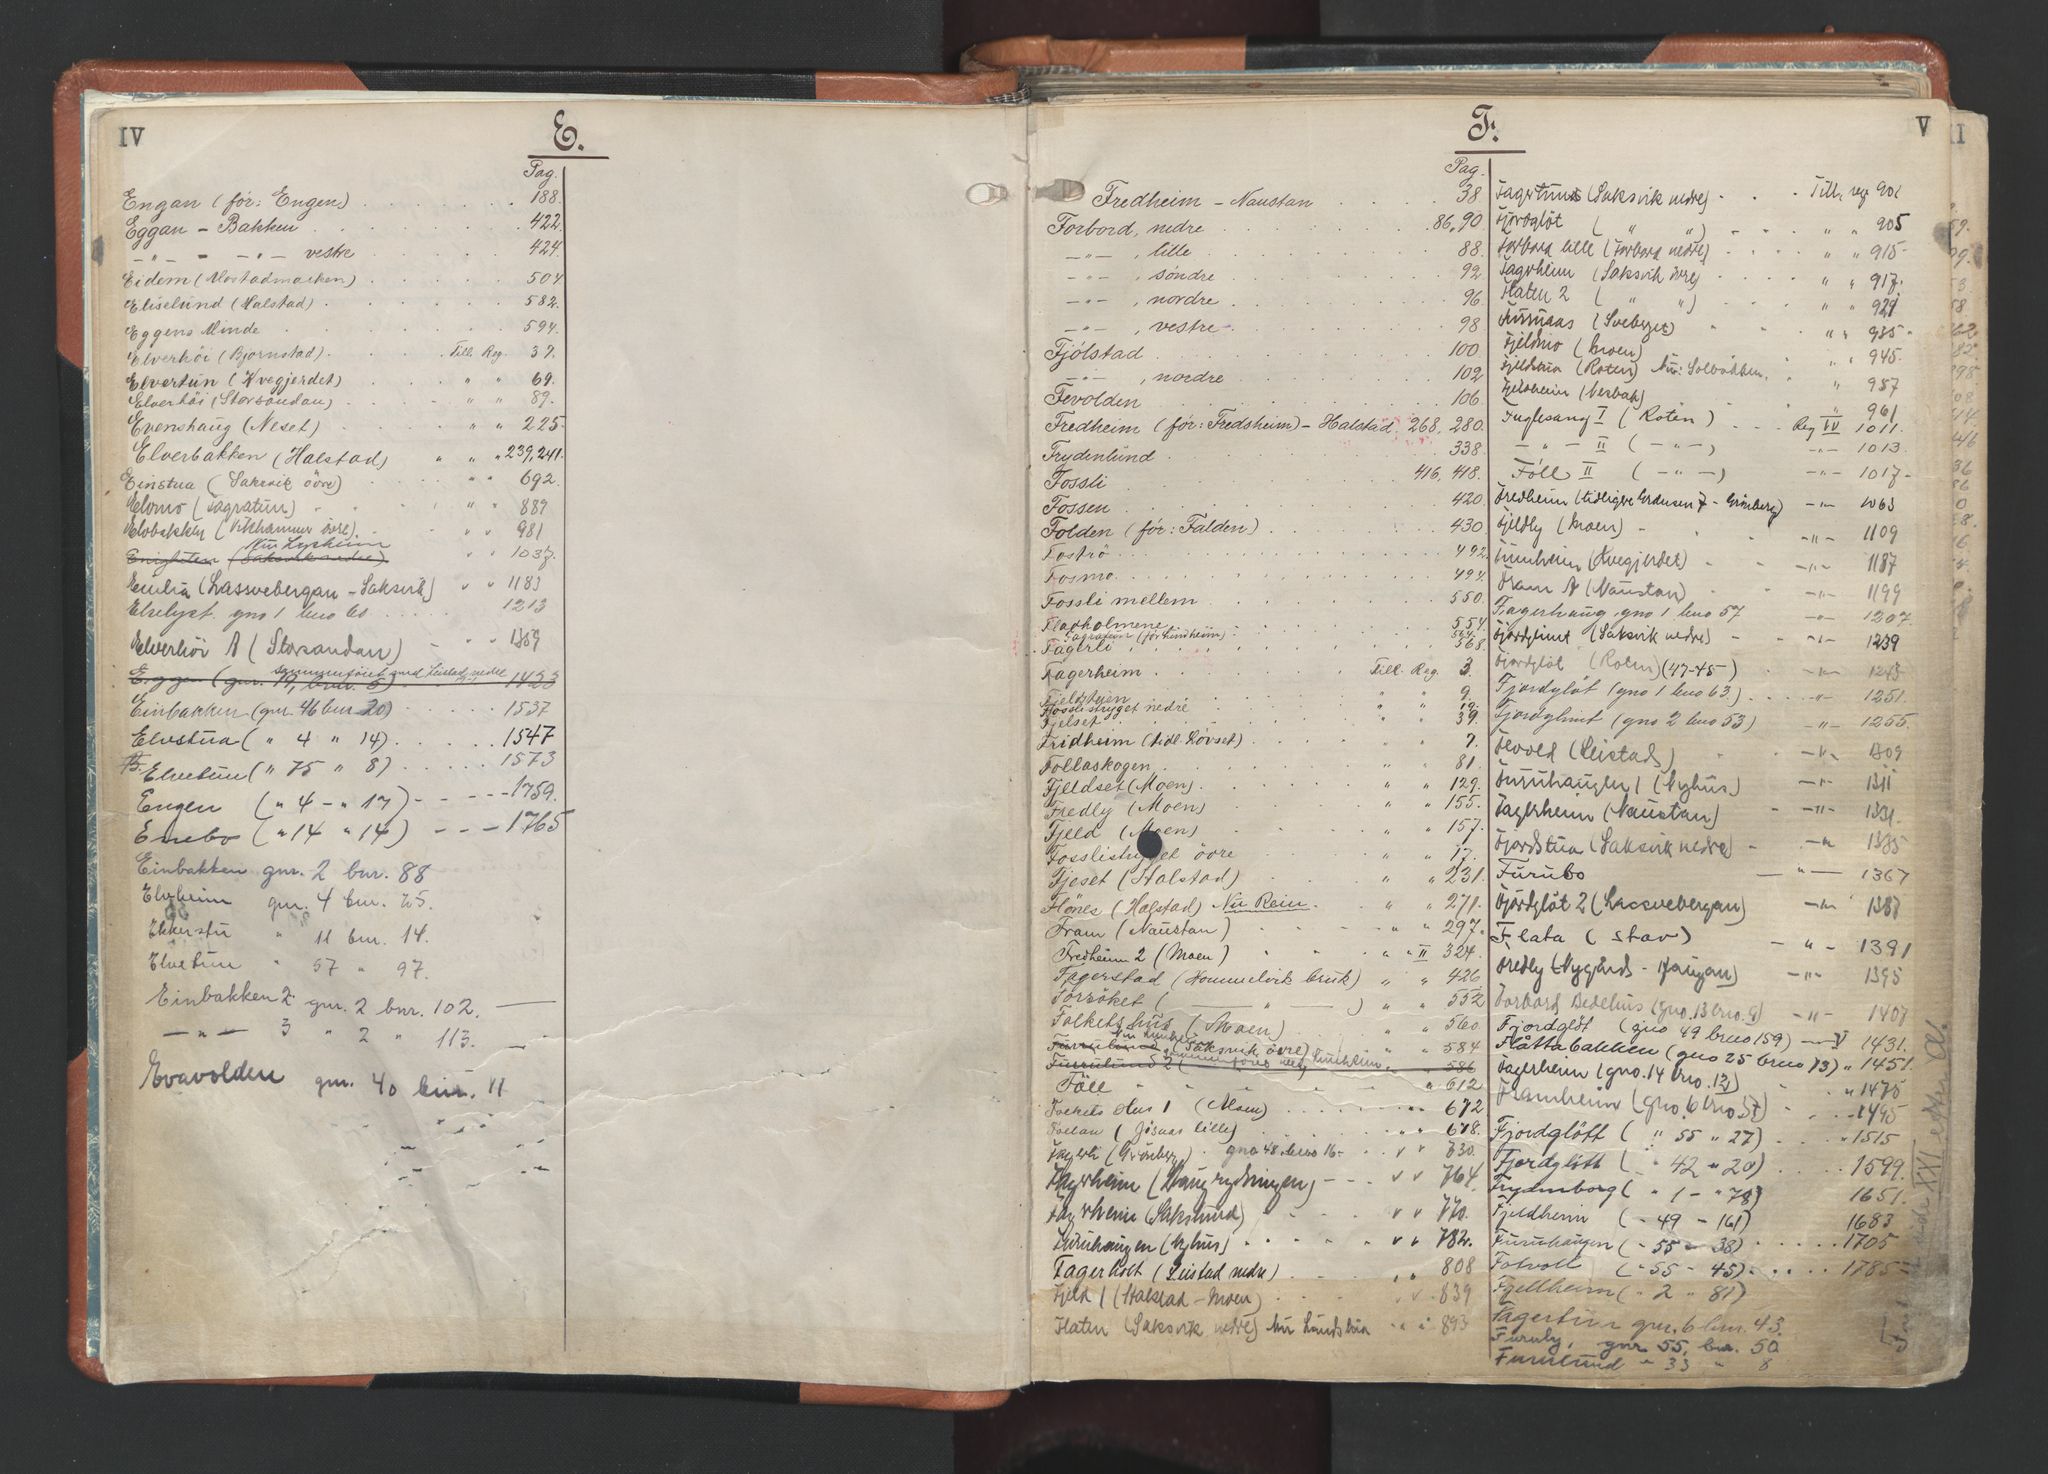 IV
E.
Pag.
Engan (för: Engen) 188.
Eggan - Bakken 422.
-"- - -"- vestre 424.
Eidem (Mostadmarken) 504
Eliselund (Halstad) 582.
Eggens Minde 594.
Elverhöi (Bjornstad) Till. Reg. 37.
Elvertun (Kvegjerdet) " " 69.
Elverhöi (Storsandan) " " 89.
Evenshaug (Neset) " " 225.
Elverbakken (Halstad) " " " 239, 241.
Einstua (Saksvik övre) " " 692.
Elvmo (Fagratun) " " 889
Elvbakken (Vikhammer övre) " " 981
Nu Lysheim
(Saksvik nedre) " " 1037.
Emilia (Lassvebergan - Saksvik) " " 1183
Elvelyst. gno 1 bno 60 1213
Elverhöi A (Storsandan) " " 1389
sammenföiet med Leistad nedre
Eggen (gnr. 19, bnr. 5) 1433
Einbakken (gnr. 46 bnr. 20) 1537
Elvstua ( " 4 " 14) 1547
Elvetun ( " 75 " 8) 1573
Engen ( " 4 - " 17) 1759.
Enebo ( " 14 " 14) 1765
Einbakken gnr. 2 bnr. 88
Elvheim gnr. 4 bnr. 25.
Ekkerstu " 11 bnr. 14.
Elvetun " 57 " 97.
Einbakken 2 gnr. 2 bnr. 102.
-"- 3 " 2 " 113.
Evavolden gnr. 40 bnr. 11
F.
V
Pag.
Fredheim - Naustan 38.
Forbord, nedre 86, 90.
-"- , lille 88.
-"- , söndre 92.
-"- , nordre 96.
-"- , vestre 98.
Fjölstad 100.
-"- , nordre 102
Fevolden 106.
Fredheim (för: Fredsheim) - Halstad 268, 280.
Frydenlund 338.
Fossli 416, 418.
Fossen 420.
Folden (för: Falden) 430
Foströ 492.
Fosmo 494.
Fossli mellem 550.
Fladholmene 554.
Fagratun (för Lindheim)
Fagerli 568.
Fagerheim Till. Reg. 3.
Fjeldheim " " 9.
Fosslistryget nedre " " 19.
Fjelset " " 39.
Fridheim (tidl. Lövset) " " 7.
Follaskogen " " 81.
Fjeldset (Moen) " " 129.
Fredly (Moen) " " 155.
Fjeld (Moen) " " 157.
Fosslistryget övre " " 17.
Fjeset (Halstad) " " 231.
Hönes (Halstad) Nu Rein. " " 271.
Fram (Naustan) " " 297.
Fredheim 2 (Moen) " " II 324.
Fagerstad (Hommelvik bruk) " " 426
Forsöket ( — " — ) " " 552
Folkets hus (Moen) " " 560.
Furulund (Saksvik övre) " " 584
Furulund 2 " " 586
Föll " " 612
Folkets Hus 1 (Moen) " " 672.
Follan (Jösaas lille) " " 678.
Fagerli (Grönberg) gno 48. bno 16 " " 730.
Fagerheim (Haugrydningen) " " 764.
Fagerheim (Sakslund) " " 770.
Furuhaugen (Nyhus) " " 782.
Fagerholt (Leistad nedre) " " 808
Fjeld 1 (Halstad - Moen) " " 839
Flaten (Saksvik nedre) Nu Lundslia " " 893
Fagertun (Saksvik nedre) Till. reg 901
Fjordglöt ( " " ) " " 905
Forbord lille (Forbord nedre) " " 915.
Fagerheim (Saksvik övre) " " 917.
Flaten 2 ( " " ) " " 921
Furumaas (Sveberget) " " 935
Fjelmo (Moen) " " 945.
Fjeldstua (Roten) Nu: Solbakken " " 957
Fjeldheim (Verbak) " 961
Fuglesang I (Roten) Reg IV 1011.
-"- II ( -"- ) -"- 1013.
Föll II ( -"- ) -"- 1017
Fredheim (tidligere Grönberg) -"- 1063
Fjeldly (Moen) -"- 1109
Furuheim (Kvegjerdet) -"- 1187
Fram A (Naustan) -"- 1199
Fagerhaug gno 1 bno 57 -"- 1207.
Fjordglimt (Saksvik nedre) -"- 1239
Fjordglöt (Roten) (47-45) -"- 1243
Fjordglöt (gno 1 bno 63) -"- 1251.
Fjordglimt (gno 2 bno 53) -"- 1255.
Fevold (Leistad) -"- 1309
Furuhaugen 1 (Nyhus) -"- 1311
Fagerheim (Naustan) -"- 1331.
Fjordstua (Saksvik nedre) -"- 1335
Furubo -"- 1367
Fjordglöt 2 (Lassvebergan) -"- 1387
Flata (Stav) -"- 1391
Fredly (Nygårds - Haugan) -"- 1395
Forbord Bedehus (gno. 13 bno. 9) -"- 1407
Fjordglöt (gno 49 bno 159) V 1431.
Flåttabakken (gno 25 bno 13) " 1451.
Fagerheim (gno. 14 bno. 12) " 1475
Framheim (gno. 6 bno. 37) 1495
Fjordglött ( " 55 " 27) " 1515
Fjordglött ( " 42 " 20) 1599.
Frydenborg ( " 1 - " 78) 1651.
Fjeldheim ( - 49 - 161) 1683
Furuhaugen ( - 55 - 38) 1705
Folvoll ( - 55 - 45) 1785
Fjellheim ( " 2 " 81)
Fagertun gnr. 6 bnr. 43.
Furuly, gnr. 55. bnr. 50.
Furulund " 33 " 8
side XXI etter Ø.